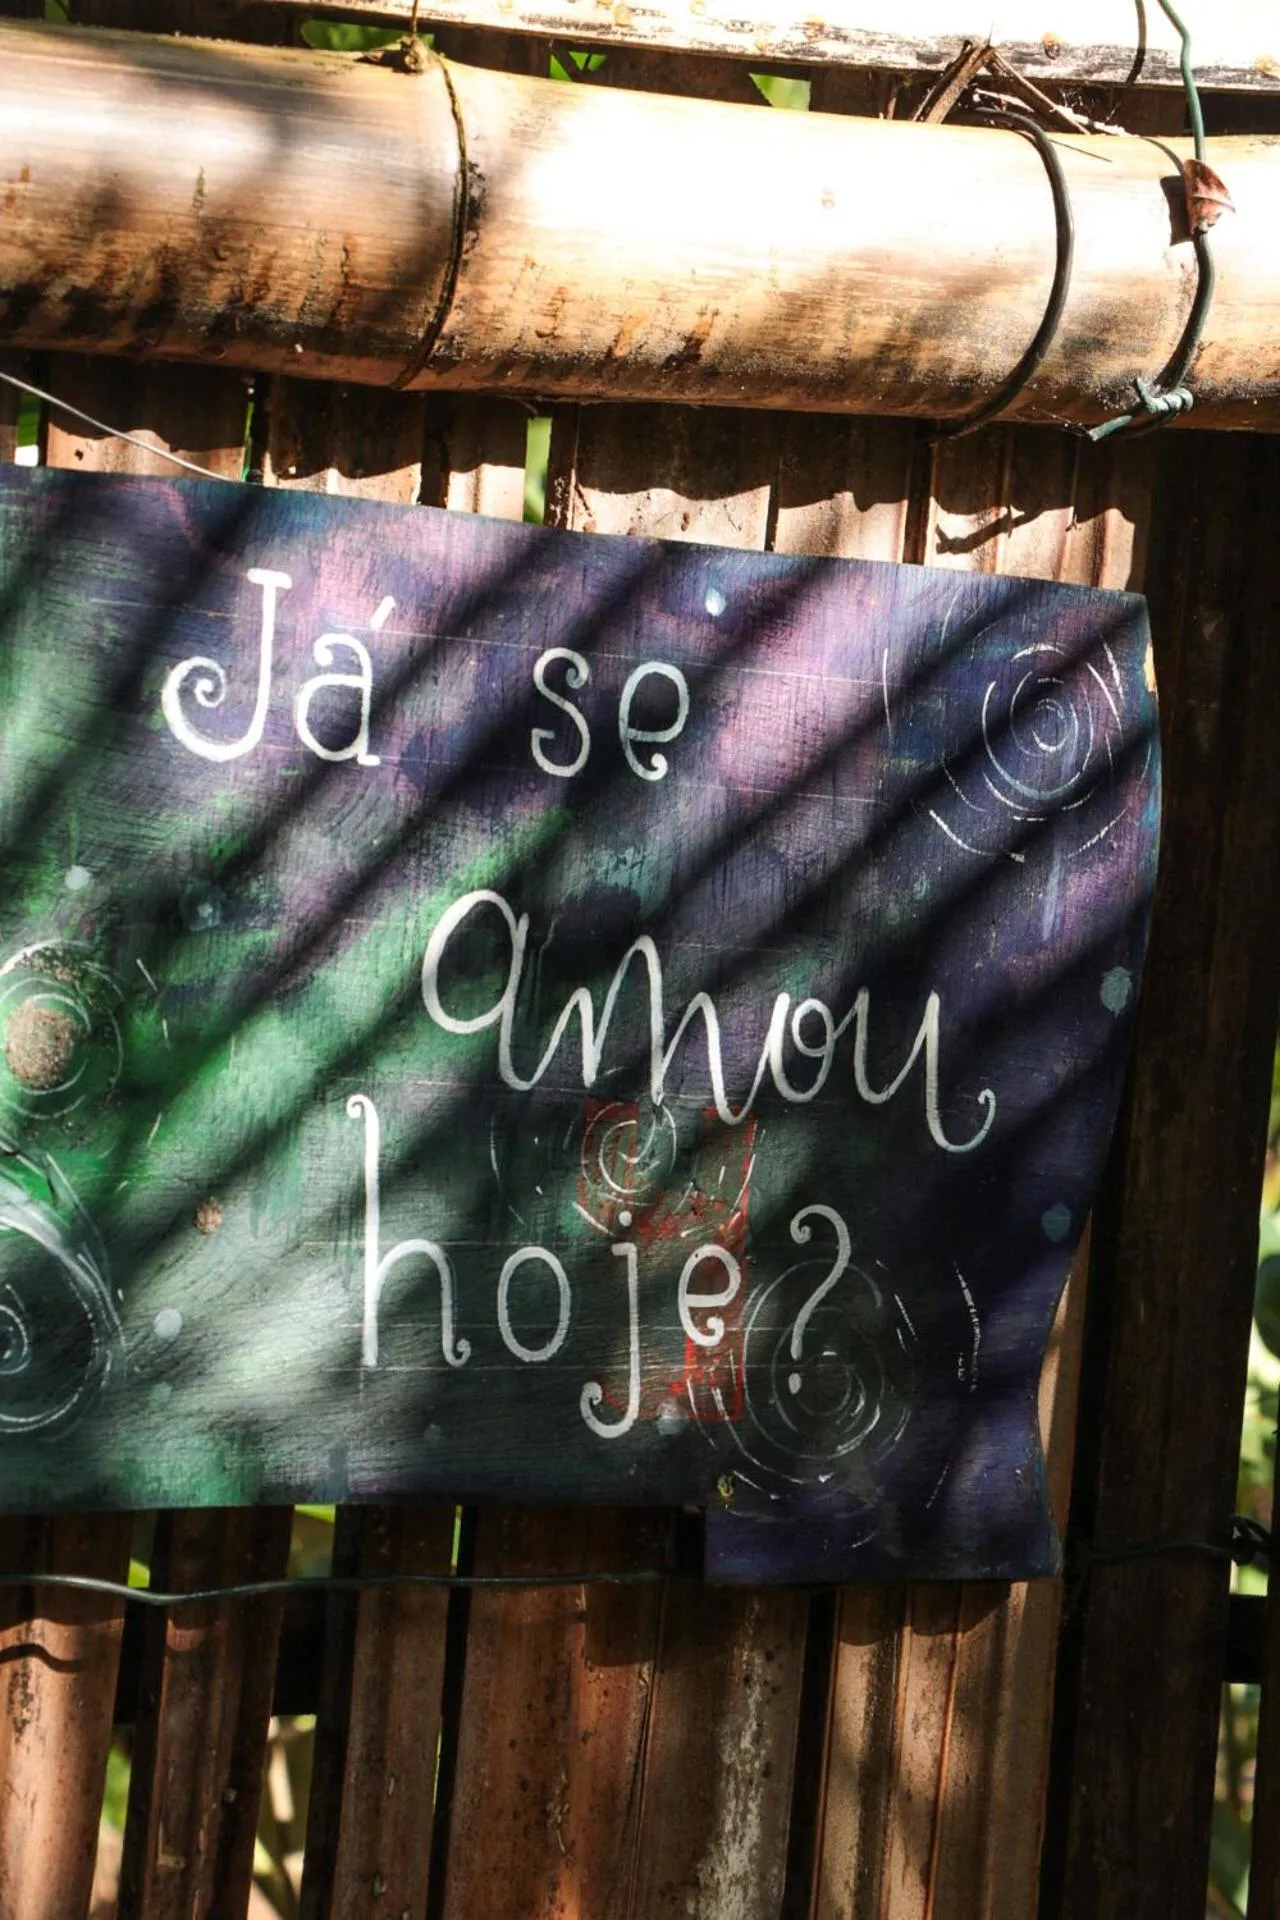 Já se
amou
hoje?